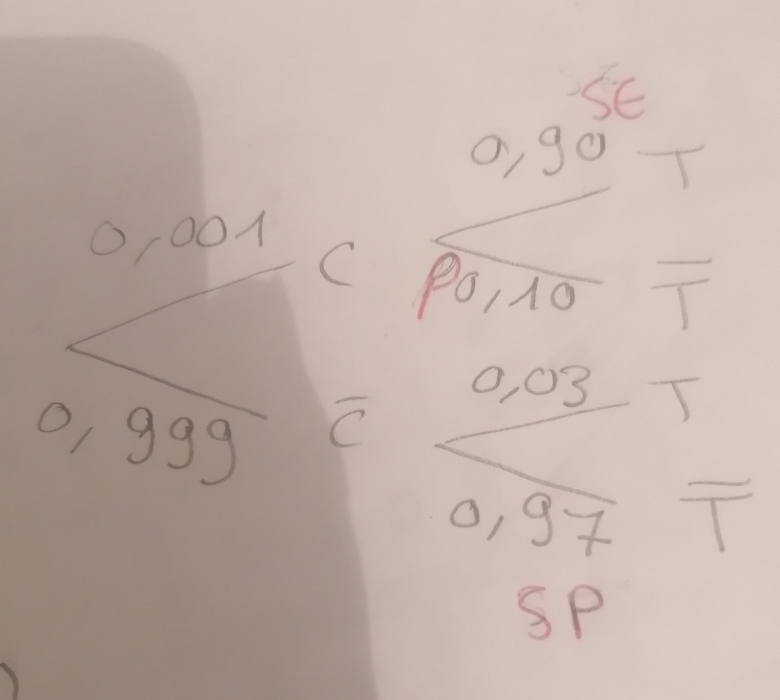 SE
0,90 T
0,001 C
P0,10 T̅
0,03 T
0,999 C̅
0,97 T̅
SP